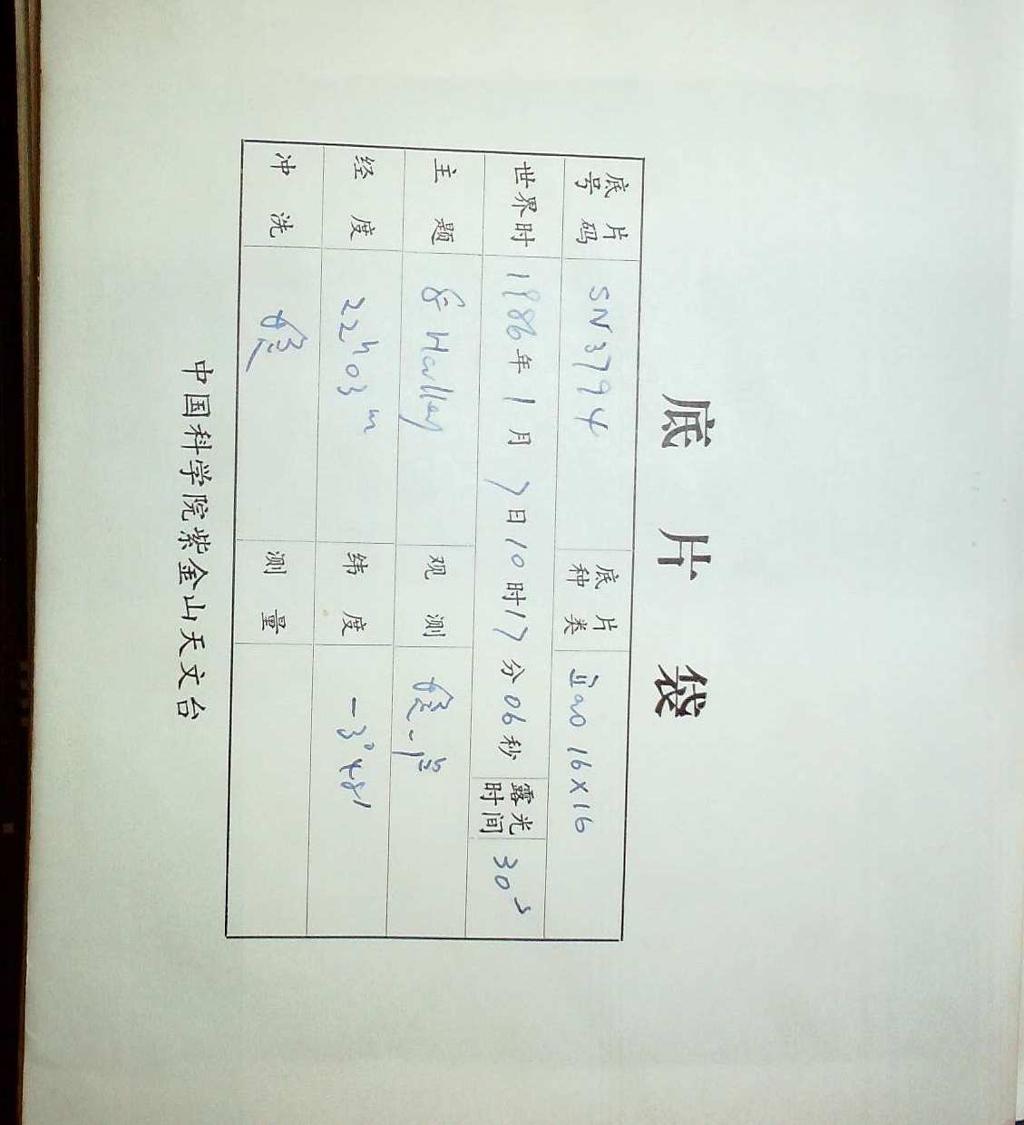 底片袋
底片号码 SN3794 底片种类 16×16
世界时 1986年1月7日10时17分06秒 露光时间 30s
主题 Halley 观测
经度 22h03m 纬度 -3°48'
冲洗 测量
中国科学院紫金山天文台